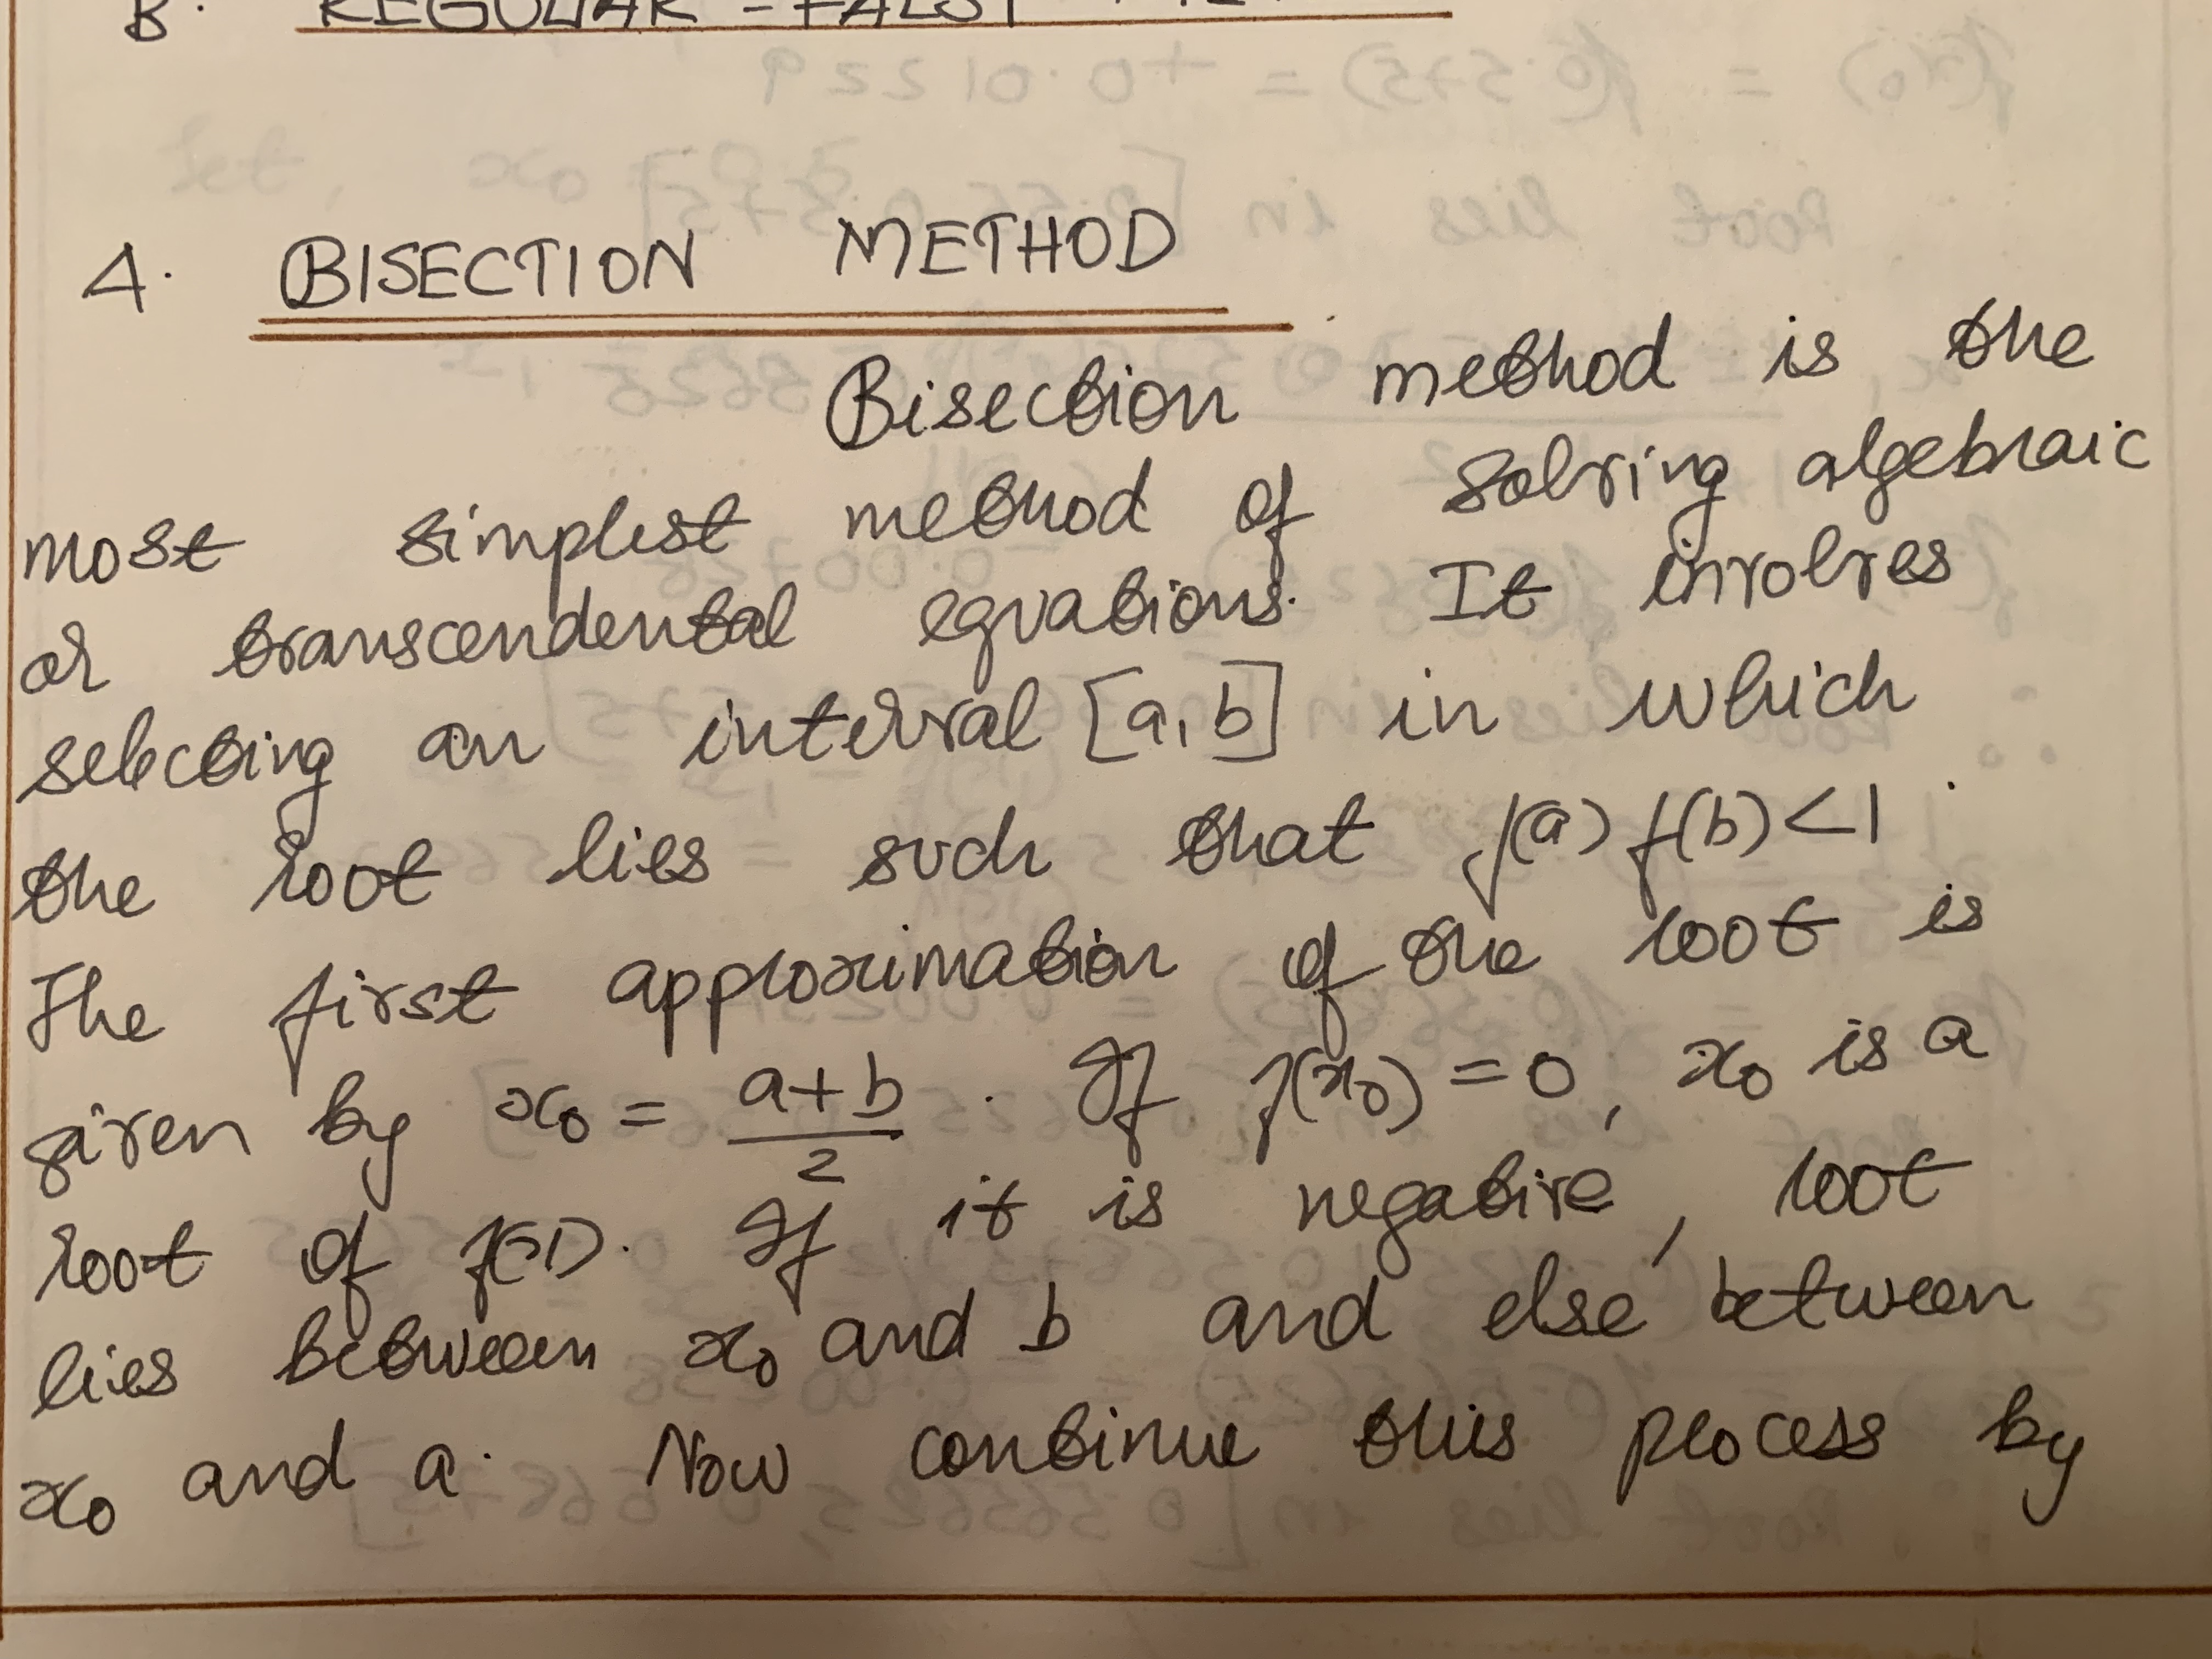 B. REGULAR - FALSI
A. BISECTION METHOD
Bisection method is the
most simplest method of solving algebraic
or transcendental equations. It involves
selecting an interval [a,b] in which
the root lies such that f(a) f(b) < 1
The first approximation of the root is
given by x₀ = a+b/2. If f(x₀) = 0, x₀ is a
root of f(x). If it is negative, root
lies between x₀ and b and else, between
x₀ and a. Now continue this process by